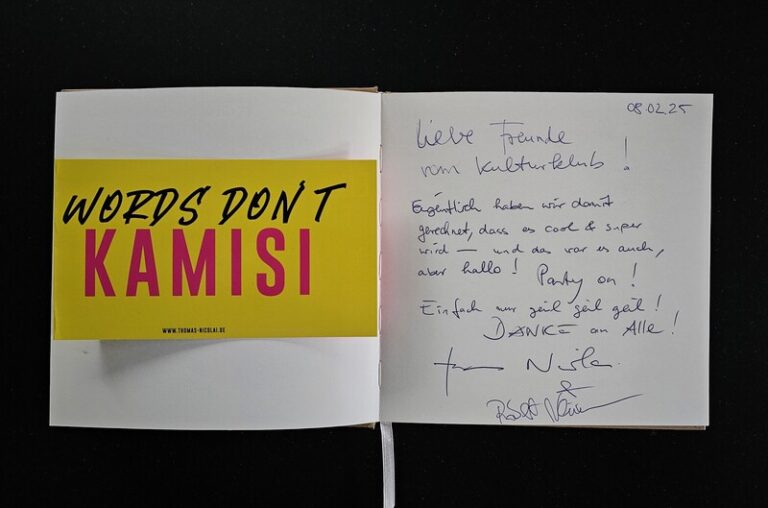 WORDS DON'T
KAMISI
WWW.THOMAS-NICOLAI.DE
08.02.25
Liebe Freunde
vom Kulturklub!
Eigentlich haben wir damit
gerechnet, dass es cool & super
wird — und das war es auch,
aber hallo! Party on!
Einfach nur geil geil geil!
DANKE an Alle!
&